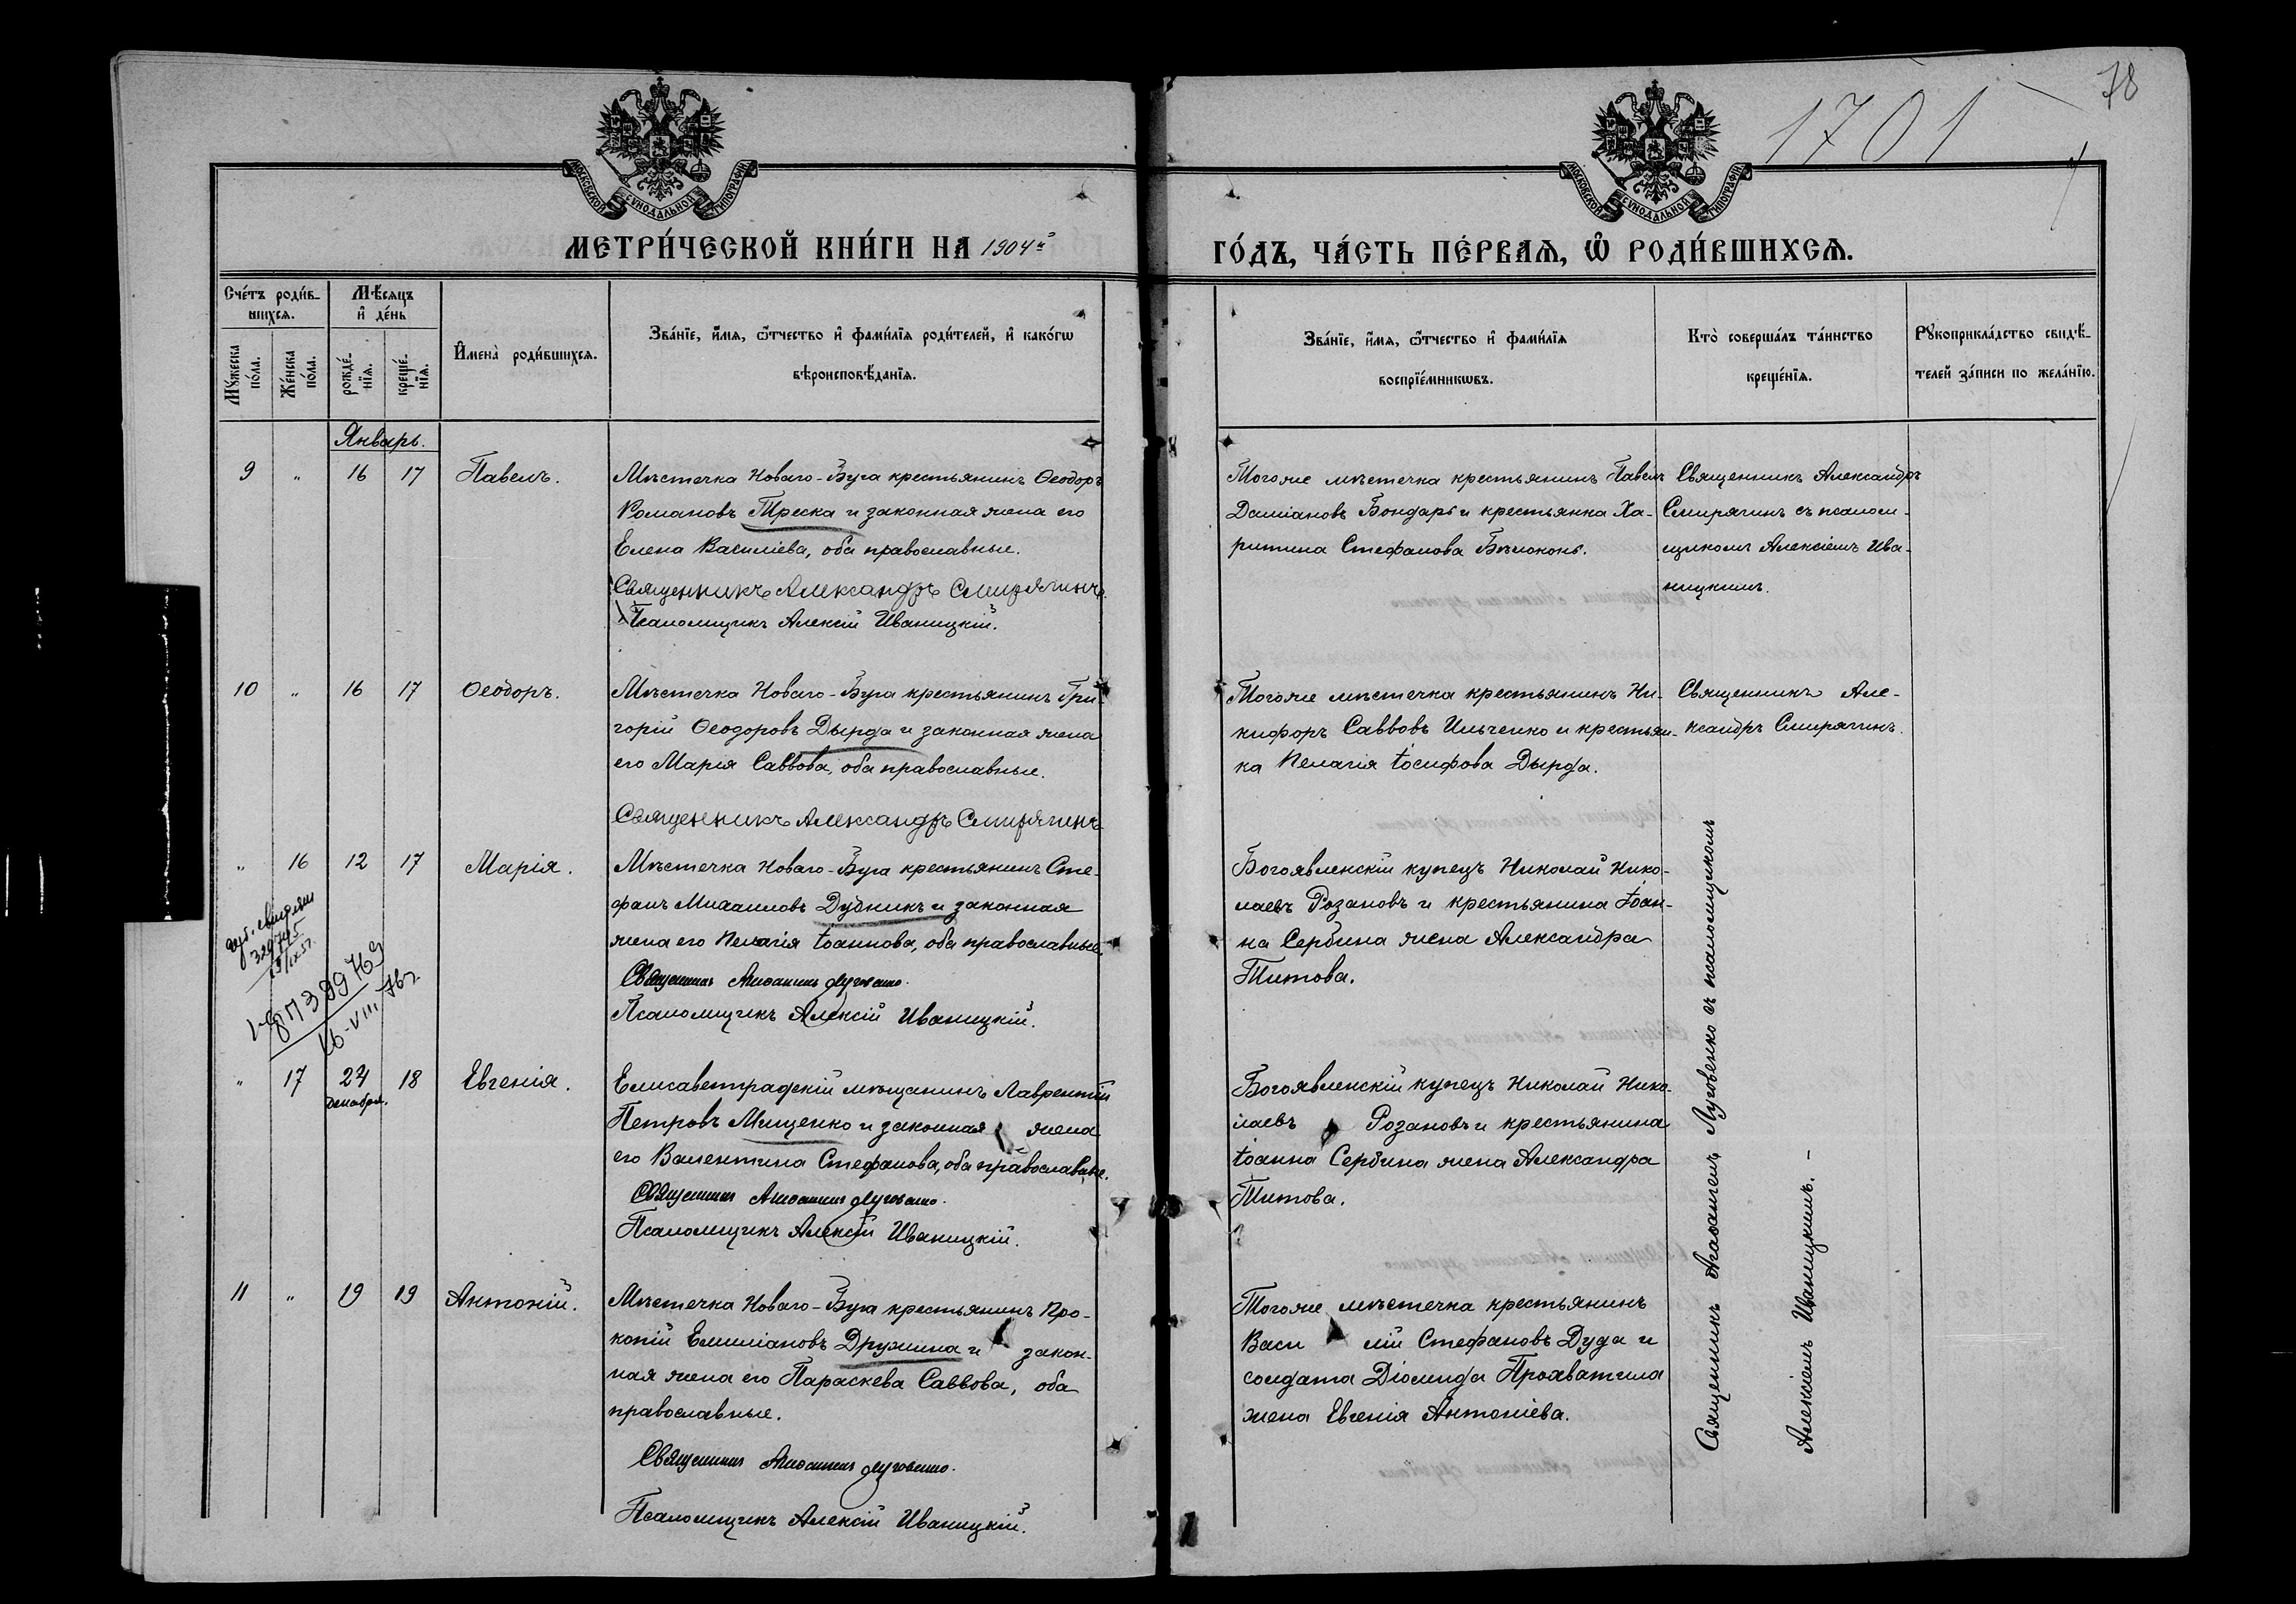 78
1701
МОСКОВСКОЙ СѴНОДАЛЬНОЙ ТИПОГРАФІИ
МОСКОВСКОЙ СѴНОДАЛЬНОЙ ТИПОГРАФІИ
МЕТРИ́ЧЕСКОЙ КНИ́ГИ НА 1904й
ГО́ДЪ, ЧА́СТЬ ПЕ́РВАѦ, Ѽ РОДИ́ВШИХСѦ.
Сче́тъ роди́в-
шихсѧ.
Мꙋ́жеска по́ла.
Же́нска по́ла.
Мѣ́сѧцъ
и҆ де́нь
рожде́-
нїѧ.
креще́-
нїѧ.
И҆мена̀ роди́вшихсѧ.
Зва́нїе, и҆́мѧ, ѻ҆́тчество и҆ фами́лїѧ роди́телей, и҆ како́гѡ
вѣроисповѣ́данїѧ.
Зва́нїе, и҆́мѧ, ѻ҆́тчество и҆ фами́лїѧ
воспрїе́мникѡвъ.
Кто̀ соверша́лъ та́инство
креще́нїѧ.
Рꙋкоприкла́дство свидѣ́-
телей за́писи по жела́нїю.
Январь.
9 " 16 17 Павелъ.
Мѣстечка Новаго-Буга крестьянинъ Ѳеодоръ
Романовъ Треска и законная жена его
Елена Василіева, оба православные.
Священникъ Александръ Смирягинъ.
Псаломщикъ Алексій Иваницкій.
Тогоже мѣстечка крестьянинъ Павелъ
Даміановъ Бондарь и крестьянка Ха-
ритина Стефанова Бѣлоконь.
Священникъ Александръ
Смирягинъ съ псалом-
щикомъ Алексіемъ Ива-
ницкимъ.
10 " 16 17 Ѳеодоръ.
Мѣстечка Новаго-Буга крестьянинъ Гри-
горій Ѳеодоровъ Дырда и законная жена
его Марія Саввова, оба православные.
Священникъ Александръ Смирягинъ
Тогоже мѣстечка крестьянинъ Ни-
кифоръ Саввовъ Ильченко и крестьян-
ка Пелагія Іосифова Дырда.
Священникъ Але-
ксандръ Смирягинъ.
" 16 12 17 Марія.
Мѣстечка Новаго-Буга крестьянинъ Сте-
фанъ Михаиловъ Дубникъ и законная
жена его Пелагія Іоаннова, оба православные.
Священникъ Агаѳангелъ Луговенко.
Псаломщикъ Алексій Иваницкій.
Богоявленскій купецъ Николай Нико-
лаевъ Розановъ и крестьянина Іоан-
на Сербина жена Александра
Титова.
329745
399763
16-VIII-76г
" 17 24 18 Евгенія.
Декабря.
Елисаветградскій мѣщанинъ Лаврентій
Петровъ Мищенко и законная жена
его Валентина Стефанова, оба православные.
Священникъ Агаѳангелъ Луговенко.
Псаломщикъ Алексій Иваницкій.
Богоявленскій купецъ Николай Нико-
лаевъ Розановъ и крестьянина
Іоанна Сербина жена Александра
Титова.
11 " 19 19 Антоній.
Мѣстечка Новаго-Буга крестьянинъ Про-
копій Емиліановъ Дружина и закон-
ная жена его Параскева Саввова, оба
православные.
Священникъ Агаѳангелъ Луговенко.
Псаломщикъ Алексій Иваницкій.
Тогоже мѣстечка крестьянинъ
Василій Стефановъ Дуда и
солдата Діомида Прохватила
жена Евгенія Антоніева.
Священникъ Агаѳангелъ Луговенко съ псаломщикомъ
Алексіемъ Иваницкимъ.